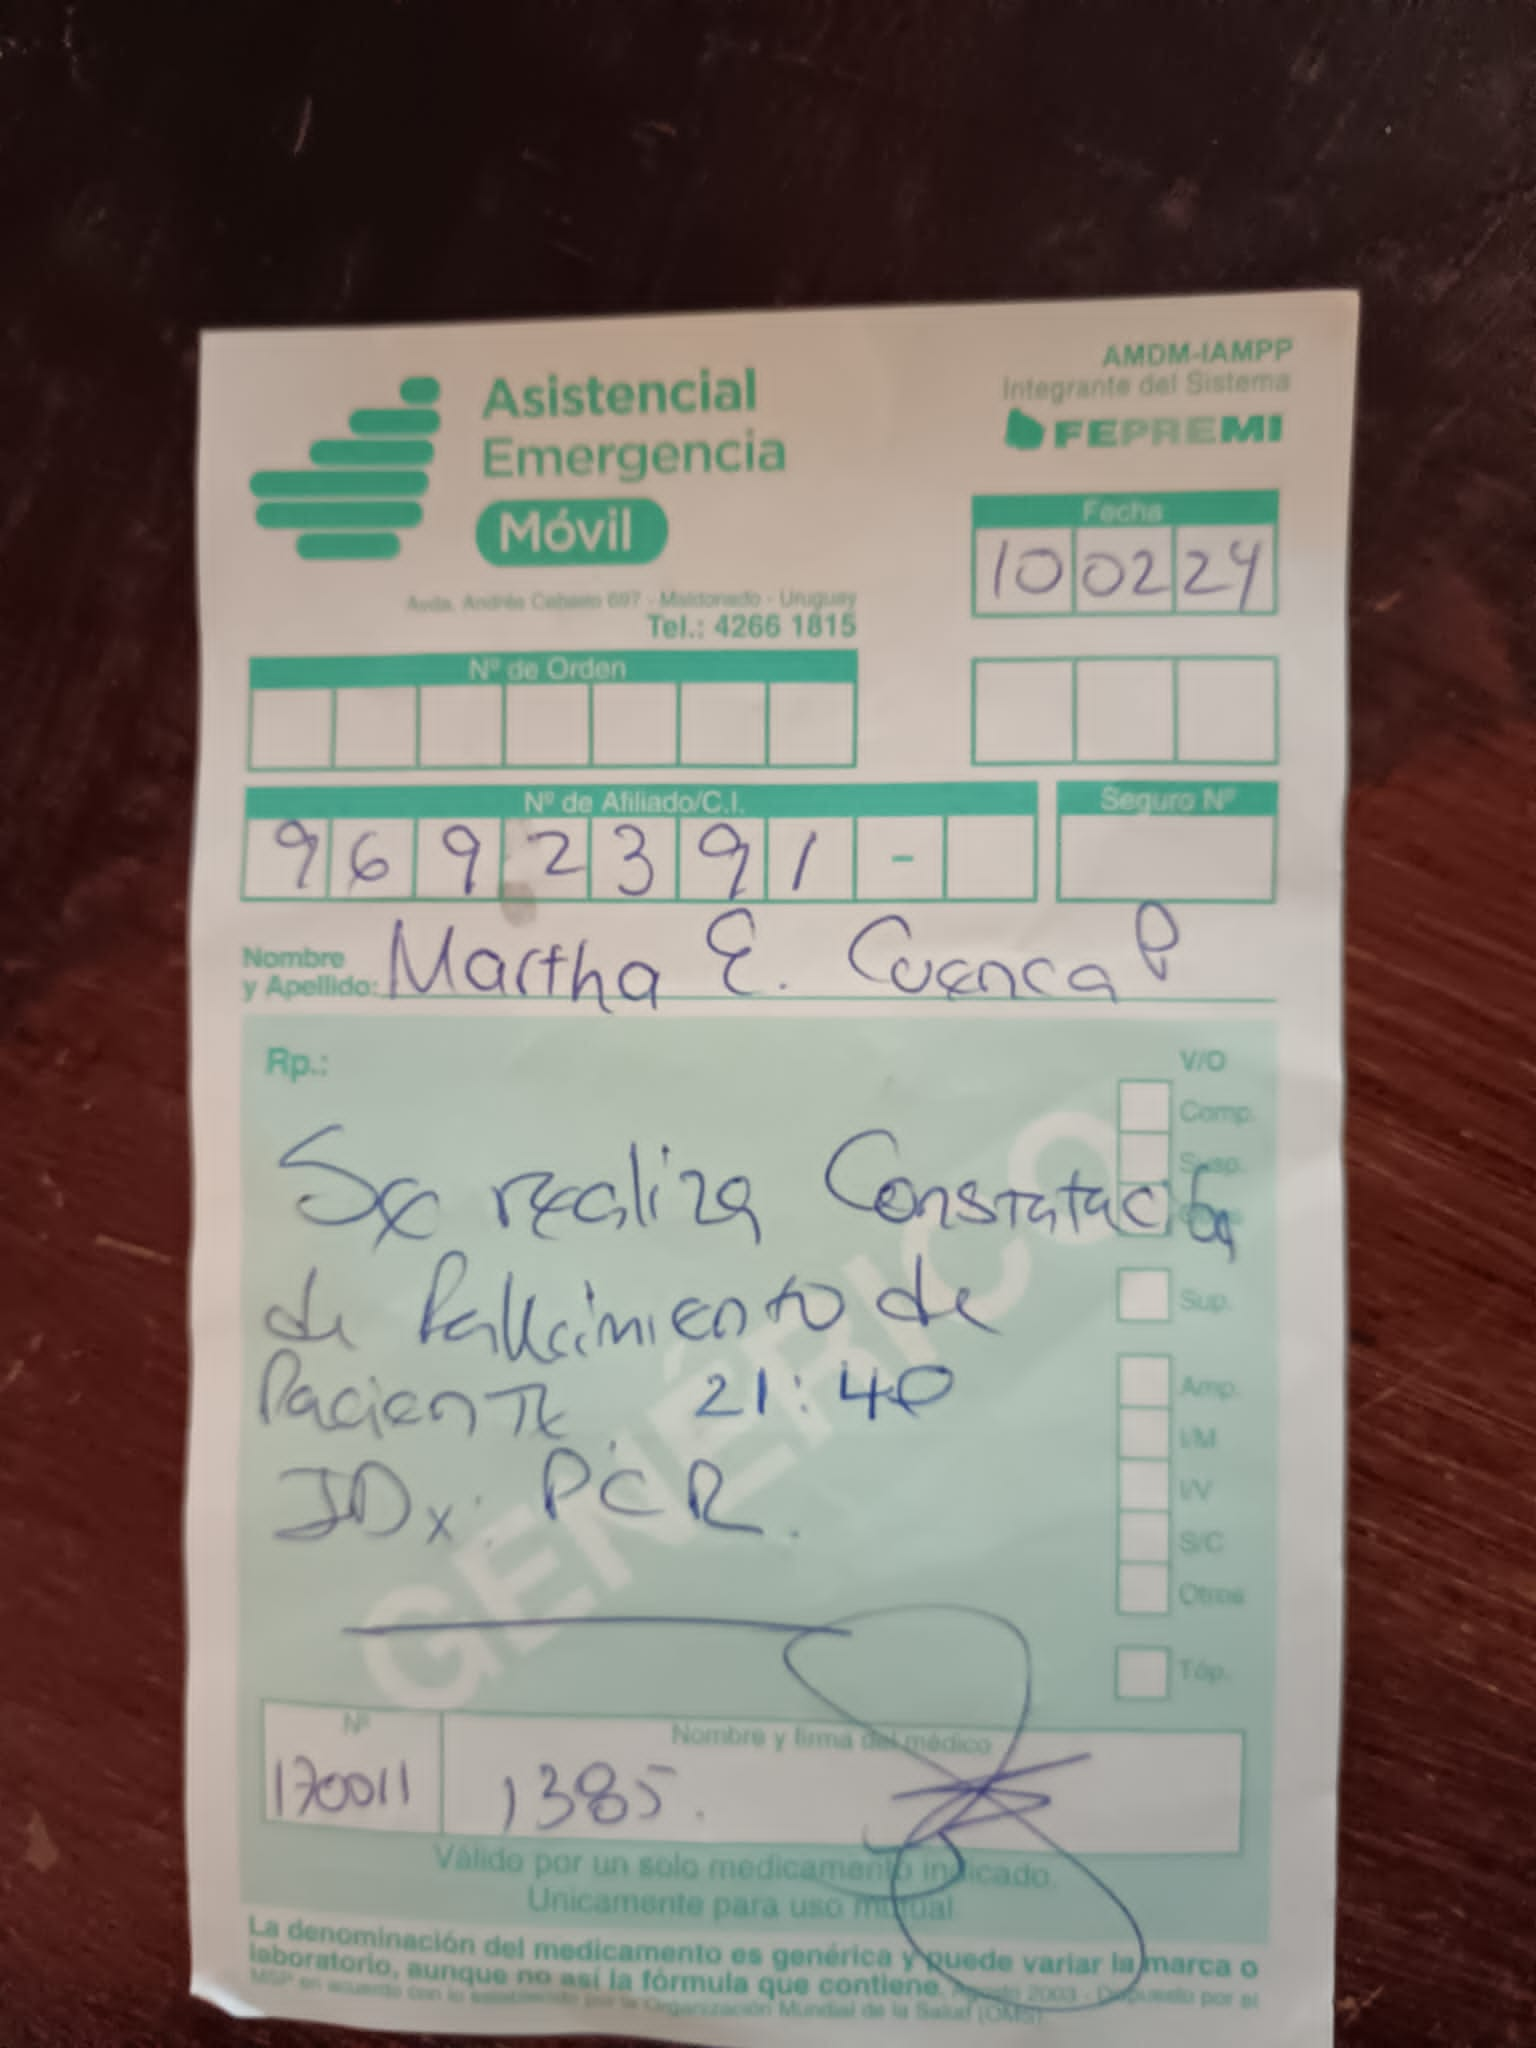 Asistencial
Emergencia
Móvil
AMDM-IAMPP
Integrante del Sistema
FEPREMI
Fecha
10 02 24
Avda. Andrés Ceberio 697 - Maldonado - Uruguay
Tel.: 4266 1815
Nº de Orden
Nº de Afiliado/C.I.
9 6 9 2 3 9 1 -
Seguro Nº
Nombre
y Apellido: Martha E. Cuenca P
Rp.:
V/O
Comp.
Susp.
Se realiza Constatación
de Fallecimiento de
Paciente 21:40
IDx: PCR.
Sup.
Amp.
I/M
I/V
S/C
Otros
Tóp.
GENÉRICO
Nº
170011
Nombre y firma del médico
1385.
Válido por un solo medicamento indicado.
Unicamente para uso mutual
La denominación del medicamento es genérica y puede variar la marca o
laboratorio, aunque no así la fórmula que contiene. Agosto 2003 - Dispuesto por el
MSP en acuerdo con lo establecido por la Organización Mundial de la Salud (OMS).